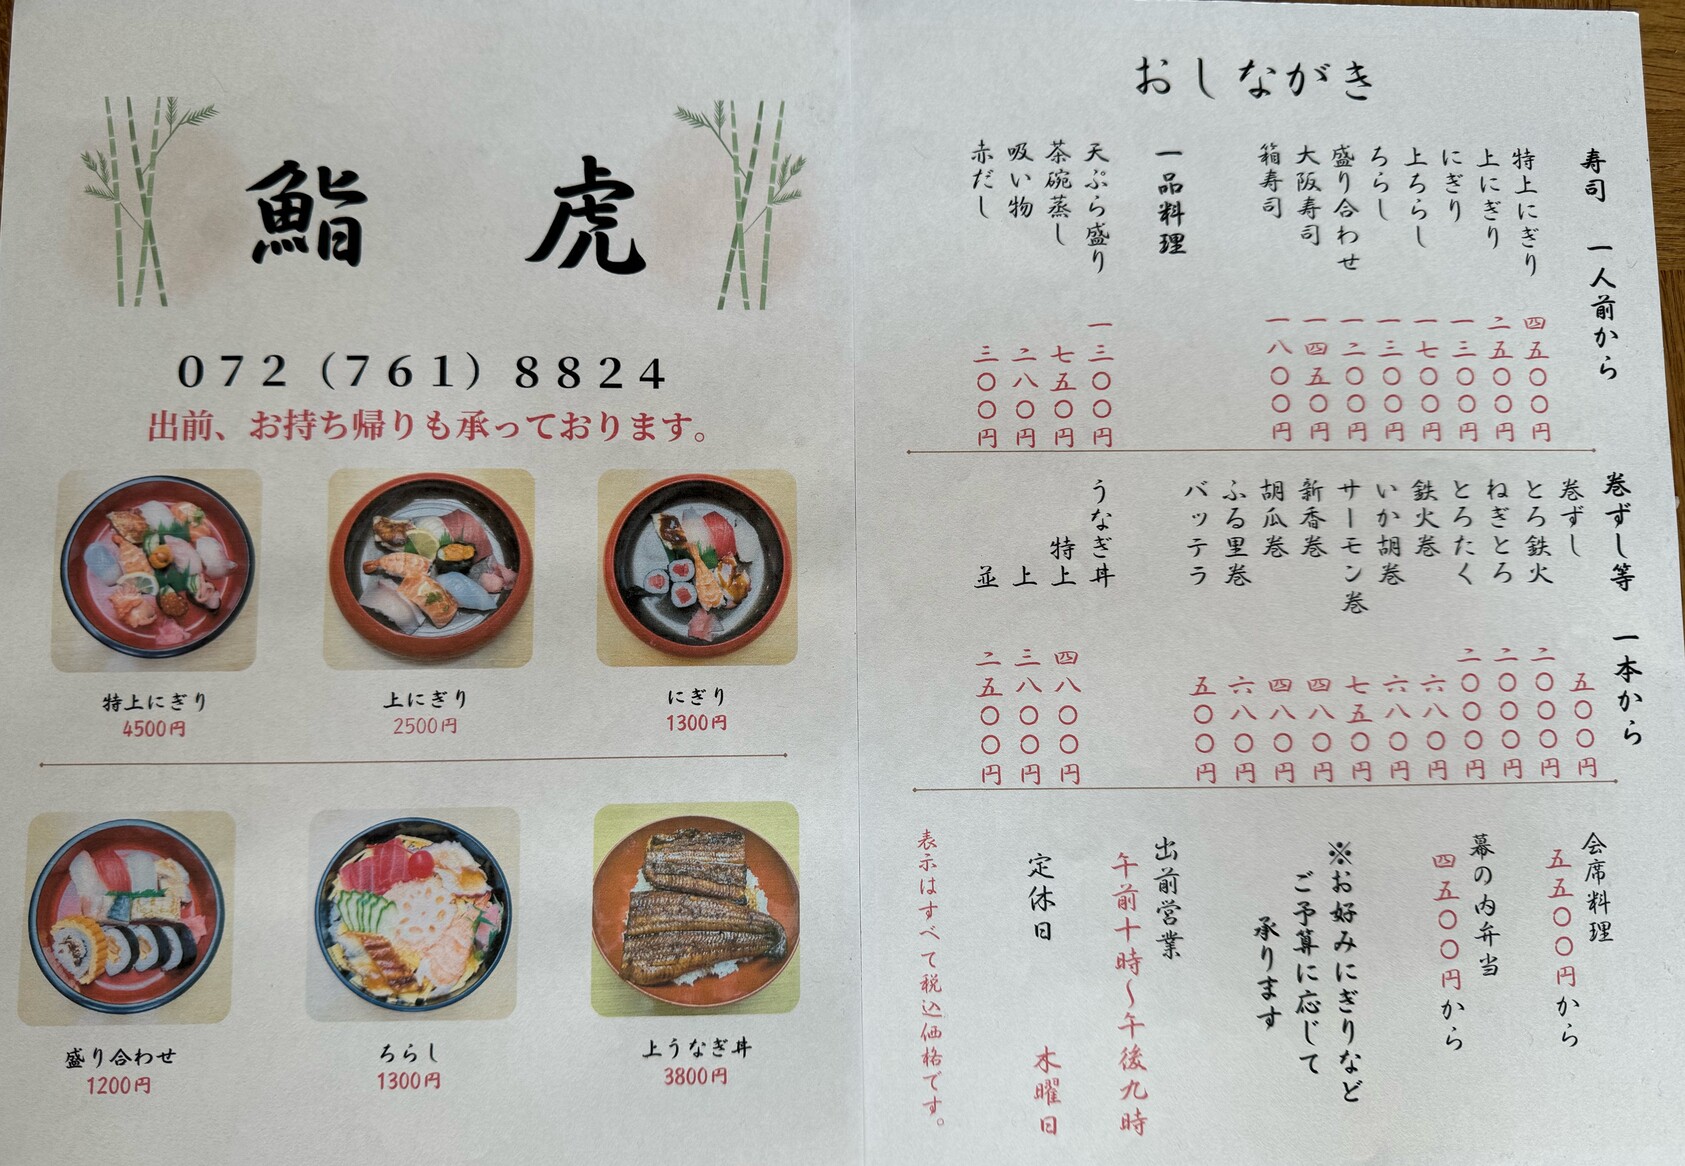 鮨 虎
072(761)8824
出前、お持ち帰りも承っております。
特上にぎり
4500円
上にぎり
2500円
にぎり
1300円
盛り合わせ
1200円
ちらし
1300円
上うなぎ丼
3800円
おしながき
寿司 一人前から
特上にぎり 四五〇〇円
上にぎり 二五〇〇円
にぎり 一三〇〇円
上ちらし 一七〇〇円
ちらし 一三〇〇円
盛り合わせ 一二〇〇円
大阪寿司 一四五〇円
箱寿司 一八〇〇円
一品料理
天ぷら盛り 一三〇〇円
茶碗蒸し 七五〇円
吸い物 二八〇円
赤だし 三〇〇円
巻ずし等 一本から
巻ずし 五〇〇円
とろ鉄火 二〇〇〇円
ねぎとろ 二〇〇〇円
とろたく 二〇〇〇円
鉄火巻 六八〇円
いか胡巻 六八〇円
サーモン巻 七五〇円
新香巻 四八〇円
胡瓜巻 四八〇円
ふる里巻 六八〇円
バッテラ 五〇〇円
うなぎ丼
特上 四八〇〇円
上 三八〇〇円
並 二五〇〇円
会席料理
五五〇〇円から
幕の内弁当
四五〇〇円から
※お好みにぎりなど
ご予算に応じて
承ります
出前営業
午前十時〜午後九時
定休日 木曜日
表示はすべて税込価格です。